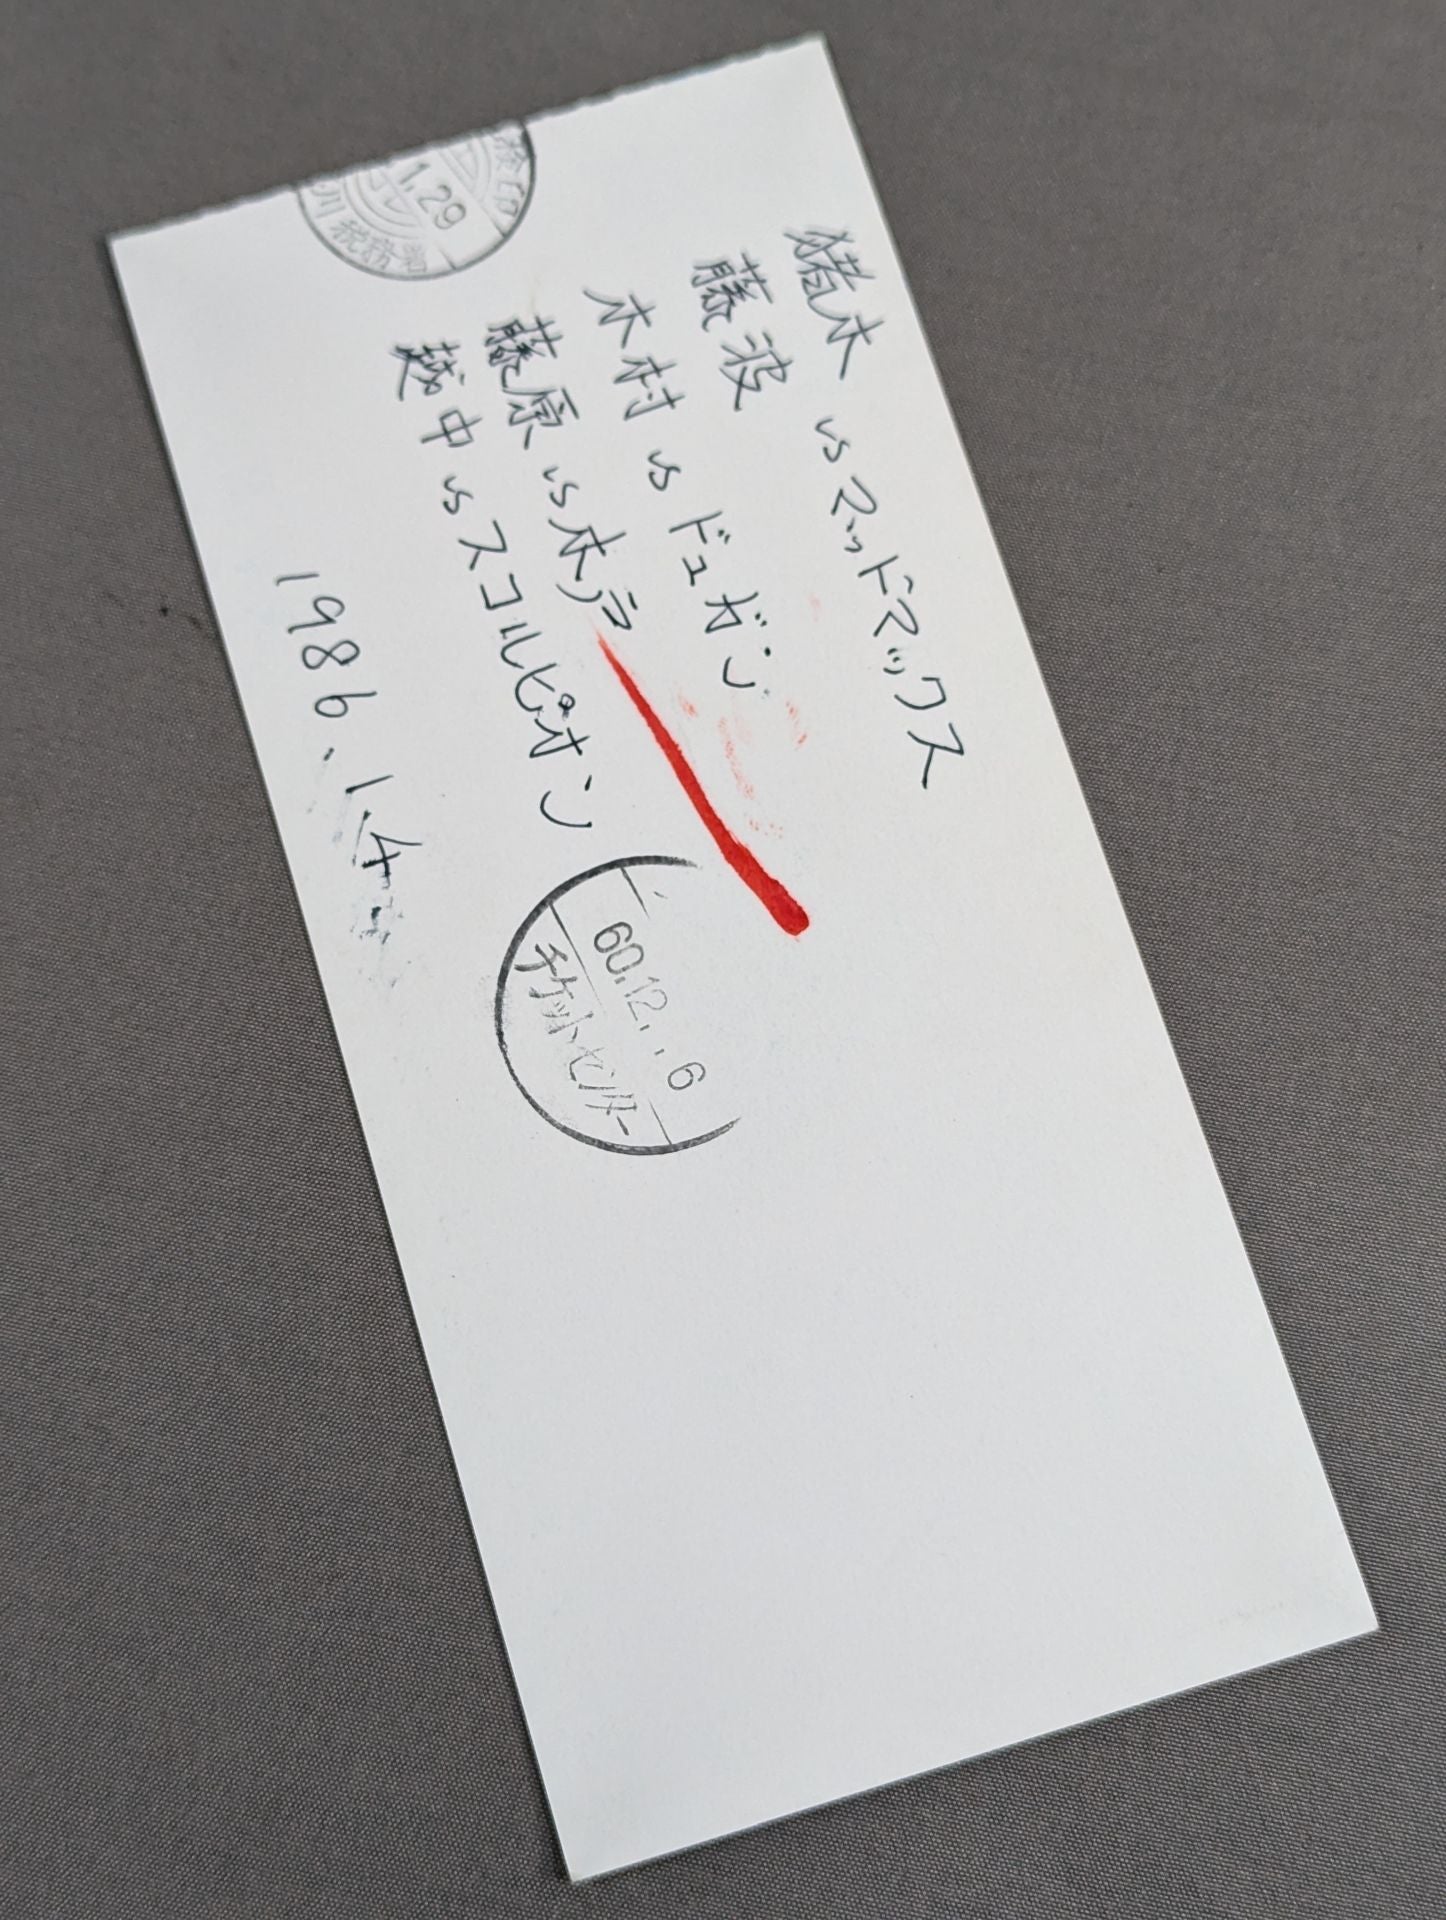 猪木 vs マッドマックス
藤波
木村 vs ドュガン
藤原 vs 木戸
越中 vs スコルピオン
1986、1.4
60.12..6
チケットセンター
検印
1.29
川税務署